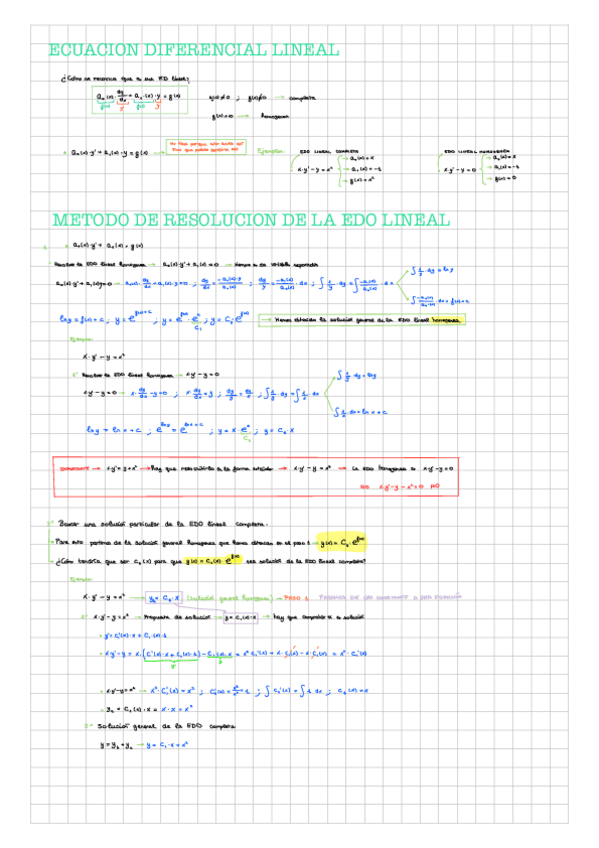 ECUACION DIFERENCIAL LINEAL
¿Cómo se reconoce que es una ED lineal?
a₀(x)·dy/dx + a₁(x)·y = g(x)
g(x)≠0 → completa
g(x)=0 → homogenea
a₀(x)·y' + a₁(x)·y = g(x)
Ejemplos:
EDO LINEAL COMPLETA
x·y'-y=x²
a₀(x)=x
a₁(x)=-1
g(x)=x²
EDO LINEAL HOMOGENEA
x·y'-y=0
a₀(x)=x
a₁(x)=-1
g(x)=0
METODO DE RESOLUCION DE LA EDO LINEAL
Resolver la EDO lineal homogenea → a₀(x)·y'+a₁(x)=0 → variable separada
∫1/y·dy=ln y
ln y = f(x)+c ; y=e^f(x)+c
→ Hemos obtenido la solución general de la EDO lineal homogenea
Ejemplo:
x·y'-y=x²
1º Resolver la EDO lineal homogenea → x·y'-y=0
x·y'-y=0 → x·dy/dx-y=0 ; x·dy/dx=y ; dy/y=dx/x ; ∫1/y·dy=∫1/x·dx
∫1/y·dy=ln y
∫1/x·dx=ln x+c
ln y=ln x+c ; y=c₁·x
→ x·y'=y+x² → hay que reescribirla a la forma → x·y'-y=x² → la EDO homogenea es x·y'-y=0
x·y'-y-x²=0 NO
2º Buscar una solución particular de la EDO lineal completa.
Para esto partimos de la solución general homogenea que hemos obtenido en el paso 1 → y(x)=C₁·e^f(x)
¿Cómo tendría que ser C₁(x) para que y(x)=C₁(x)·e^f(x) sea solución de la EDO lineal completa?
Ejemplo:
x·y'-y=x² → y=C₁·x (solución general homogenea) → PASO 1 PASAMOS DE UNA CONSTANTE A UNA FUNCIÓN
2º x·y'-y=x² → Propuesta de solución → y=C₁(x)·x → hay que comprobar si es solución
y'=C₁'(x)·x+C₁(x)·1
x·y'-y=x·(C₁'(x)·x+C₁(x)·1)-C₁(x)·x=x²·C₁'(x)+x·C₁(x)-x·C₁(x)=x²·C₁'(x)
x·y'-y=x² → x²·C₁'(x)=x² ; C₁'(x)=x²/x²=1 ; ∫C₁'(x)=∫1 dx ; C₁(x)=x
=C₁(x)·x=x·x=x²
3º Solución general de la EDO completa
→ y=C₁·x+x²